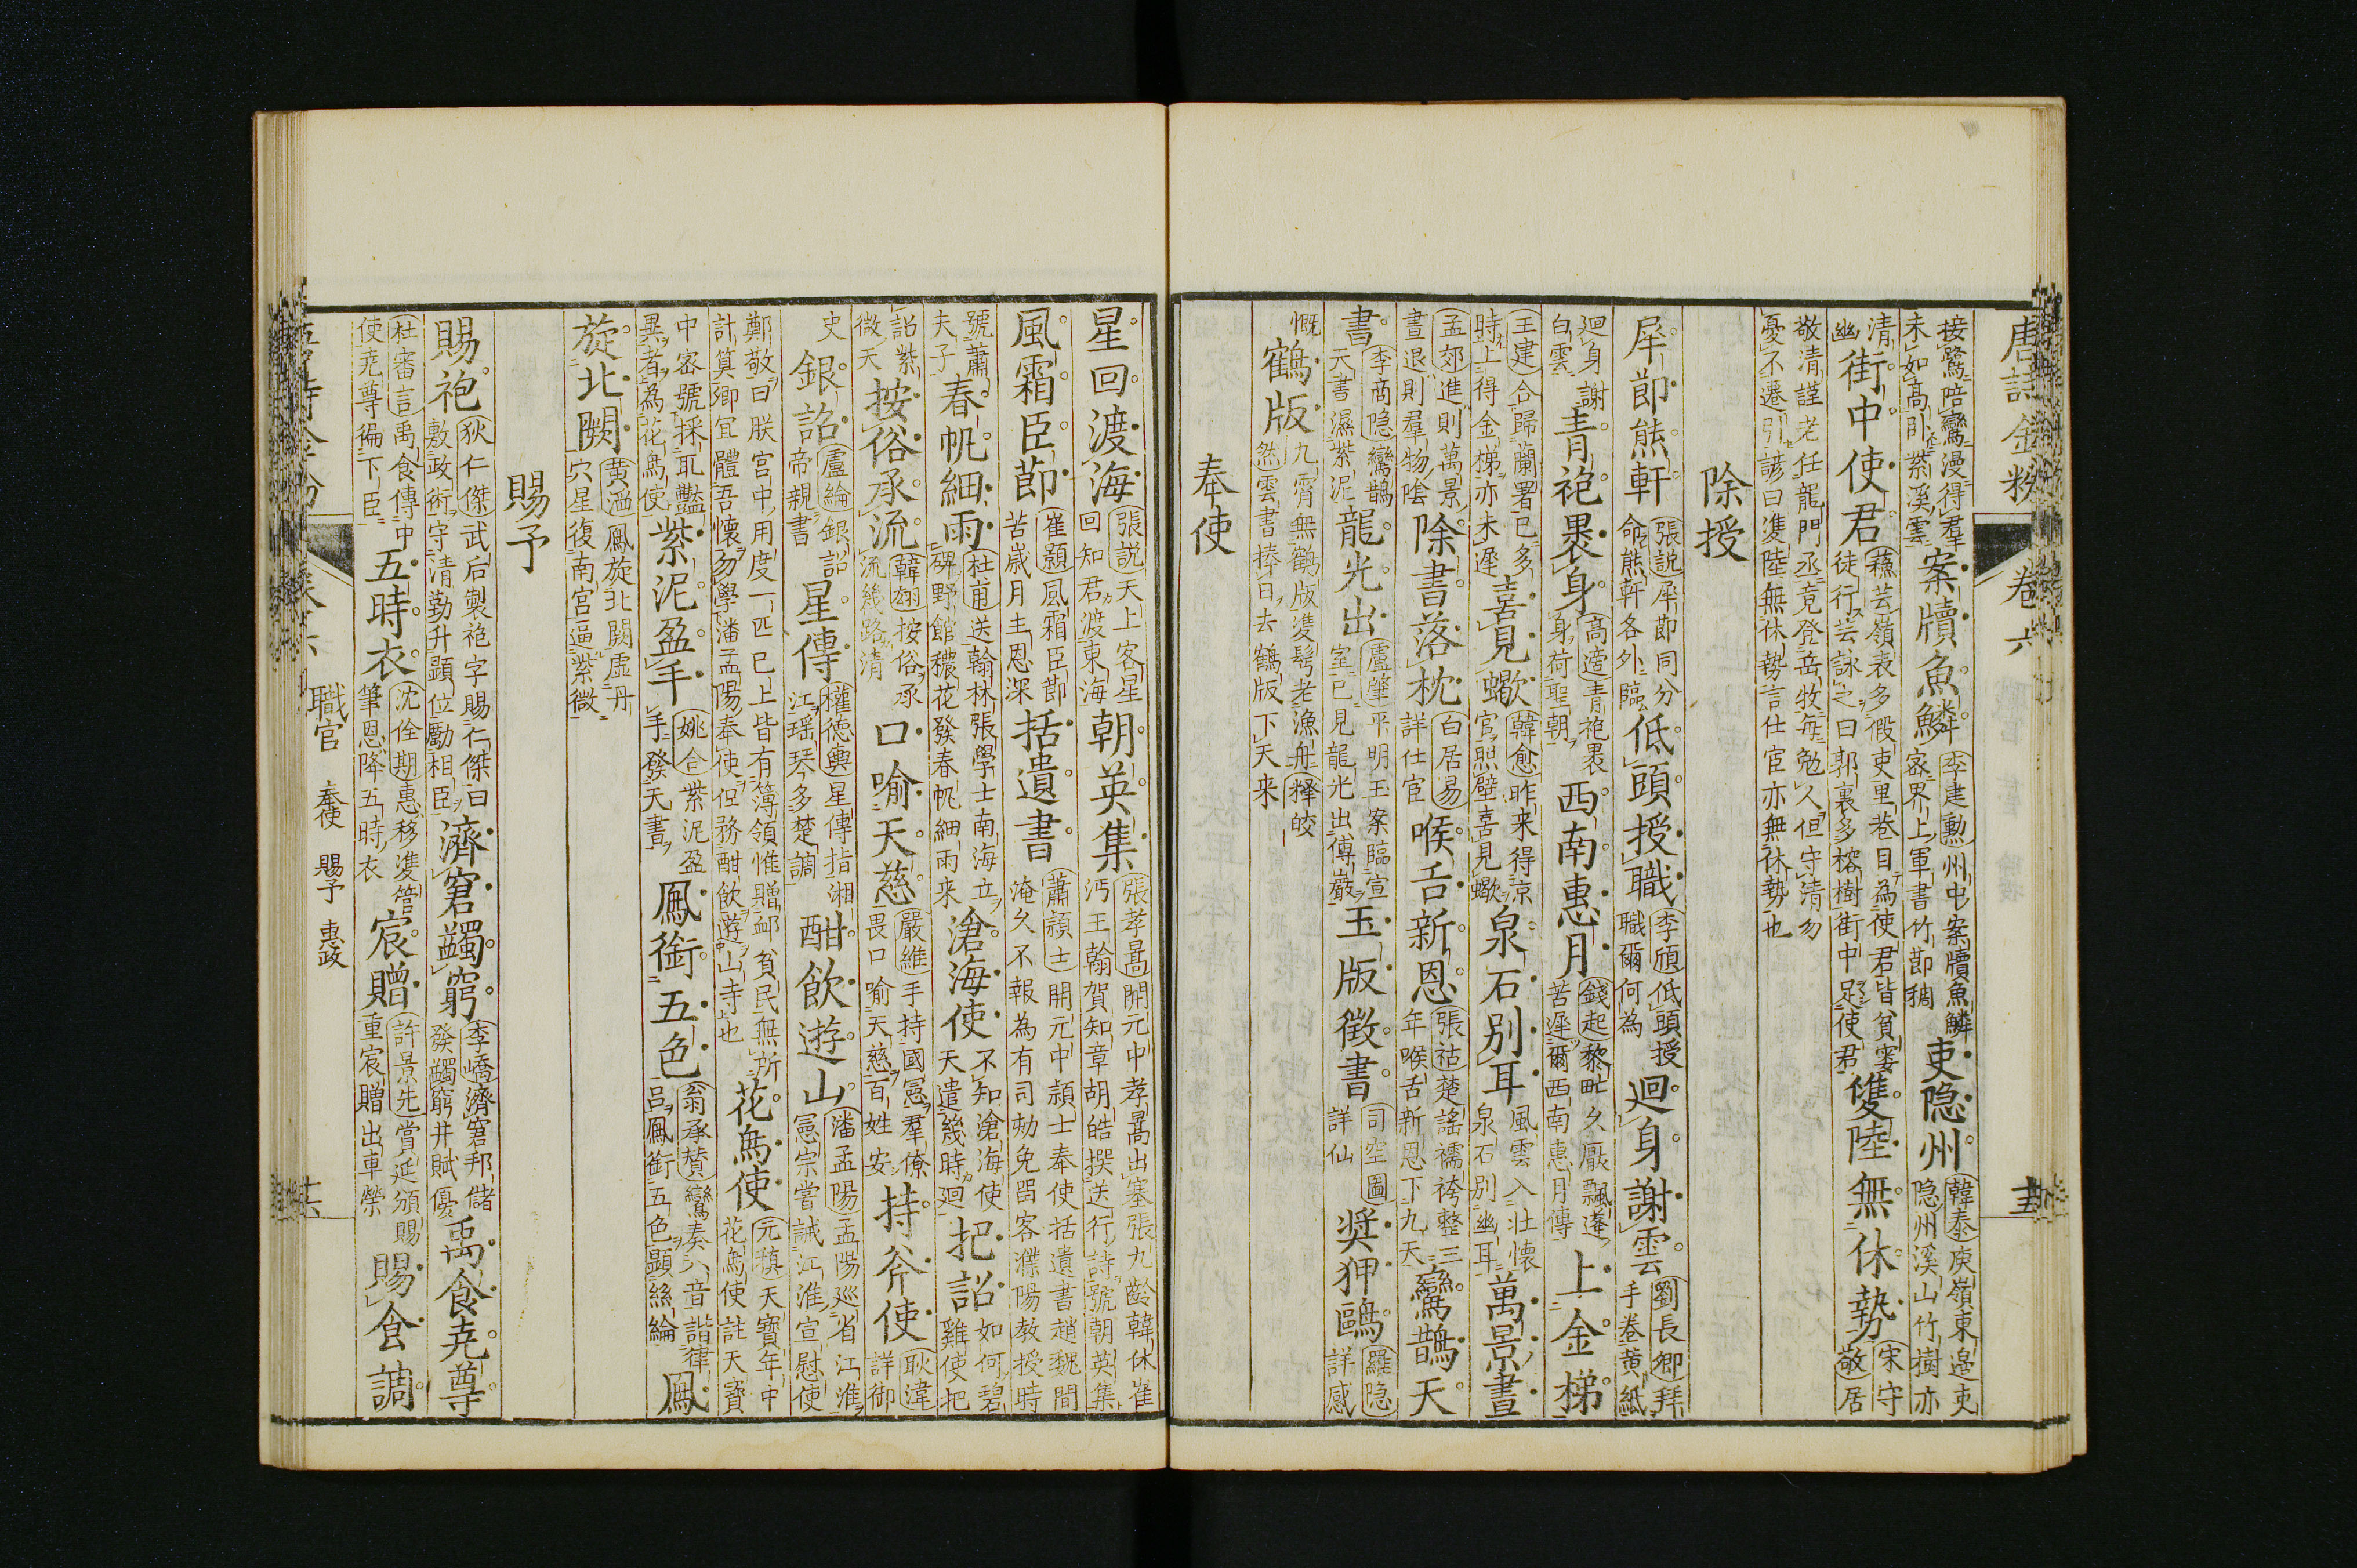 唐詩金粉 卷六
接鷺陪鸞漫得羣
未如高臥紫溪雲
案牘魚鱗 李建勲州中案牘魚鱗
密界上軍書竹節稠
吏隐州 韓泰庾嶺東邉吏
隐州溪山竹樹亦
清幽
街中使君 蘓芸嶺表多假吏里巷目為使君皆貧窶
徒行芸詠之曰郭裏多榕樹街中足使君
雙陸無休勢 宋守敬居
敬清謹老任龍門丞竟登岳牧毎勉人但守清勿
憂不遷引諺曰雙陸無休勢言仕宦亦無休勢也
除授
犀節熊軒 張説犀節同分
命熊軒各外臨
低頭授職 李頎低頭授
職爾何為
迴身謝雲 劉長卿拜
手卷黄紙
迴身謝
白雲
青袍褁身 高適青袍褁
身荷聖朝
西南惠月 錢起黎甿久厭飄遥
苦遲爾西南惠月傳
上金梯
王建合歸蘭署已多
時上得金梯亦未遲
喜見蠍 韓愈昨来得京
官照壁喜見蠍
泉石别耳 風雲入壮懐
泉石别幽耳
萬景晝
孟郊進則萬景
晝退則羣物陰
除書落枕 白居易
詳仕宦
喉舌新恩 張祜楚謡襦袴整三
年喉舌新恩下九天
鸞鵲天
書 李商隐鸞鵲
天書濕紫泥
龍光出 盧肇平明玉案臨宣
室已見龍光出傅巖
玉版徴書 司空圖
詳仙
奨狎鷗 羅隐
詳感
慨
鶴版 九霄無鶴版雙髩老漁舟 擇皎
然雲書捧日去鶴版下天来
奉使
星回渡海 張説天上客星
回知君渡東海
朝英集 張孝暠開元中孝暠出塞張九齡韓休崔
沔王翰賀知章胡皓撰送行詩號朝英集
風霜臣節 崔顥風霜臣節
苦歳月主恩深
括遺書 蕭頴士開元中頴士奉使括遺書趙魏間
淹久不報為有司劾免畱客濮陽教授時
號蕭
夫子
春帆細雨 杜甫送翰林張學士南海立
碑野館穠花發春帆細雨来
滄海使 不知滄海使
天遣幾時廻
把詔 如何碧
雞使把
詔紫
微天
按俗承流 韓翃按俗承
流幾路清
口喻天慈 嚴維手持國憲羣僚
畏口喻天慈百姓安
持斧使 耿湋
詳御
史
銀詔 盧綸銀詔
帝親書
星傳 權徳輿星傳指湘
江瑶琴多楚調
酣飲遊山 潘孟陽孟陽廵省江淮
憲宗嘗誡江淮宣慰使
鄭敬曰朕宮中用度一匹已上皆有簿領惟贈䘏貧民無所
計算卿冝體吾懐勿學潘孟陽奉使但務酣飲遊山寺也
花鳥使 元稹天寶年中
花鳥使註天寶
中密號採取艷
異者為花鳥使
紫泥盈手 姚合紫泥盈
手發天書
鳳銜五色 翁承賛鸞奏八音諧律
吕鳳銜五色顯絲綸
鳳
旋北闕 黄滔鳳旋北闕虚丹
穴星復南宫逼紫微
賜予
賜袍 狄仁傑武后製袍字賜仁傑曰
敷政術守清勤升顯位勵相臣
濟窘蠲窮 李嶠濟窘邦儲
發蠲窮井賦優
禹食尭尊
杜審言禹食傳中
使尭尊徧下臣
五時衣 沈佺期惠移雙管
筆恩降五時衣
宸贈 許景先賞延頒賜
重宸贈出車榮
賜食調
職官 奉使 賜予 惠政